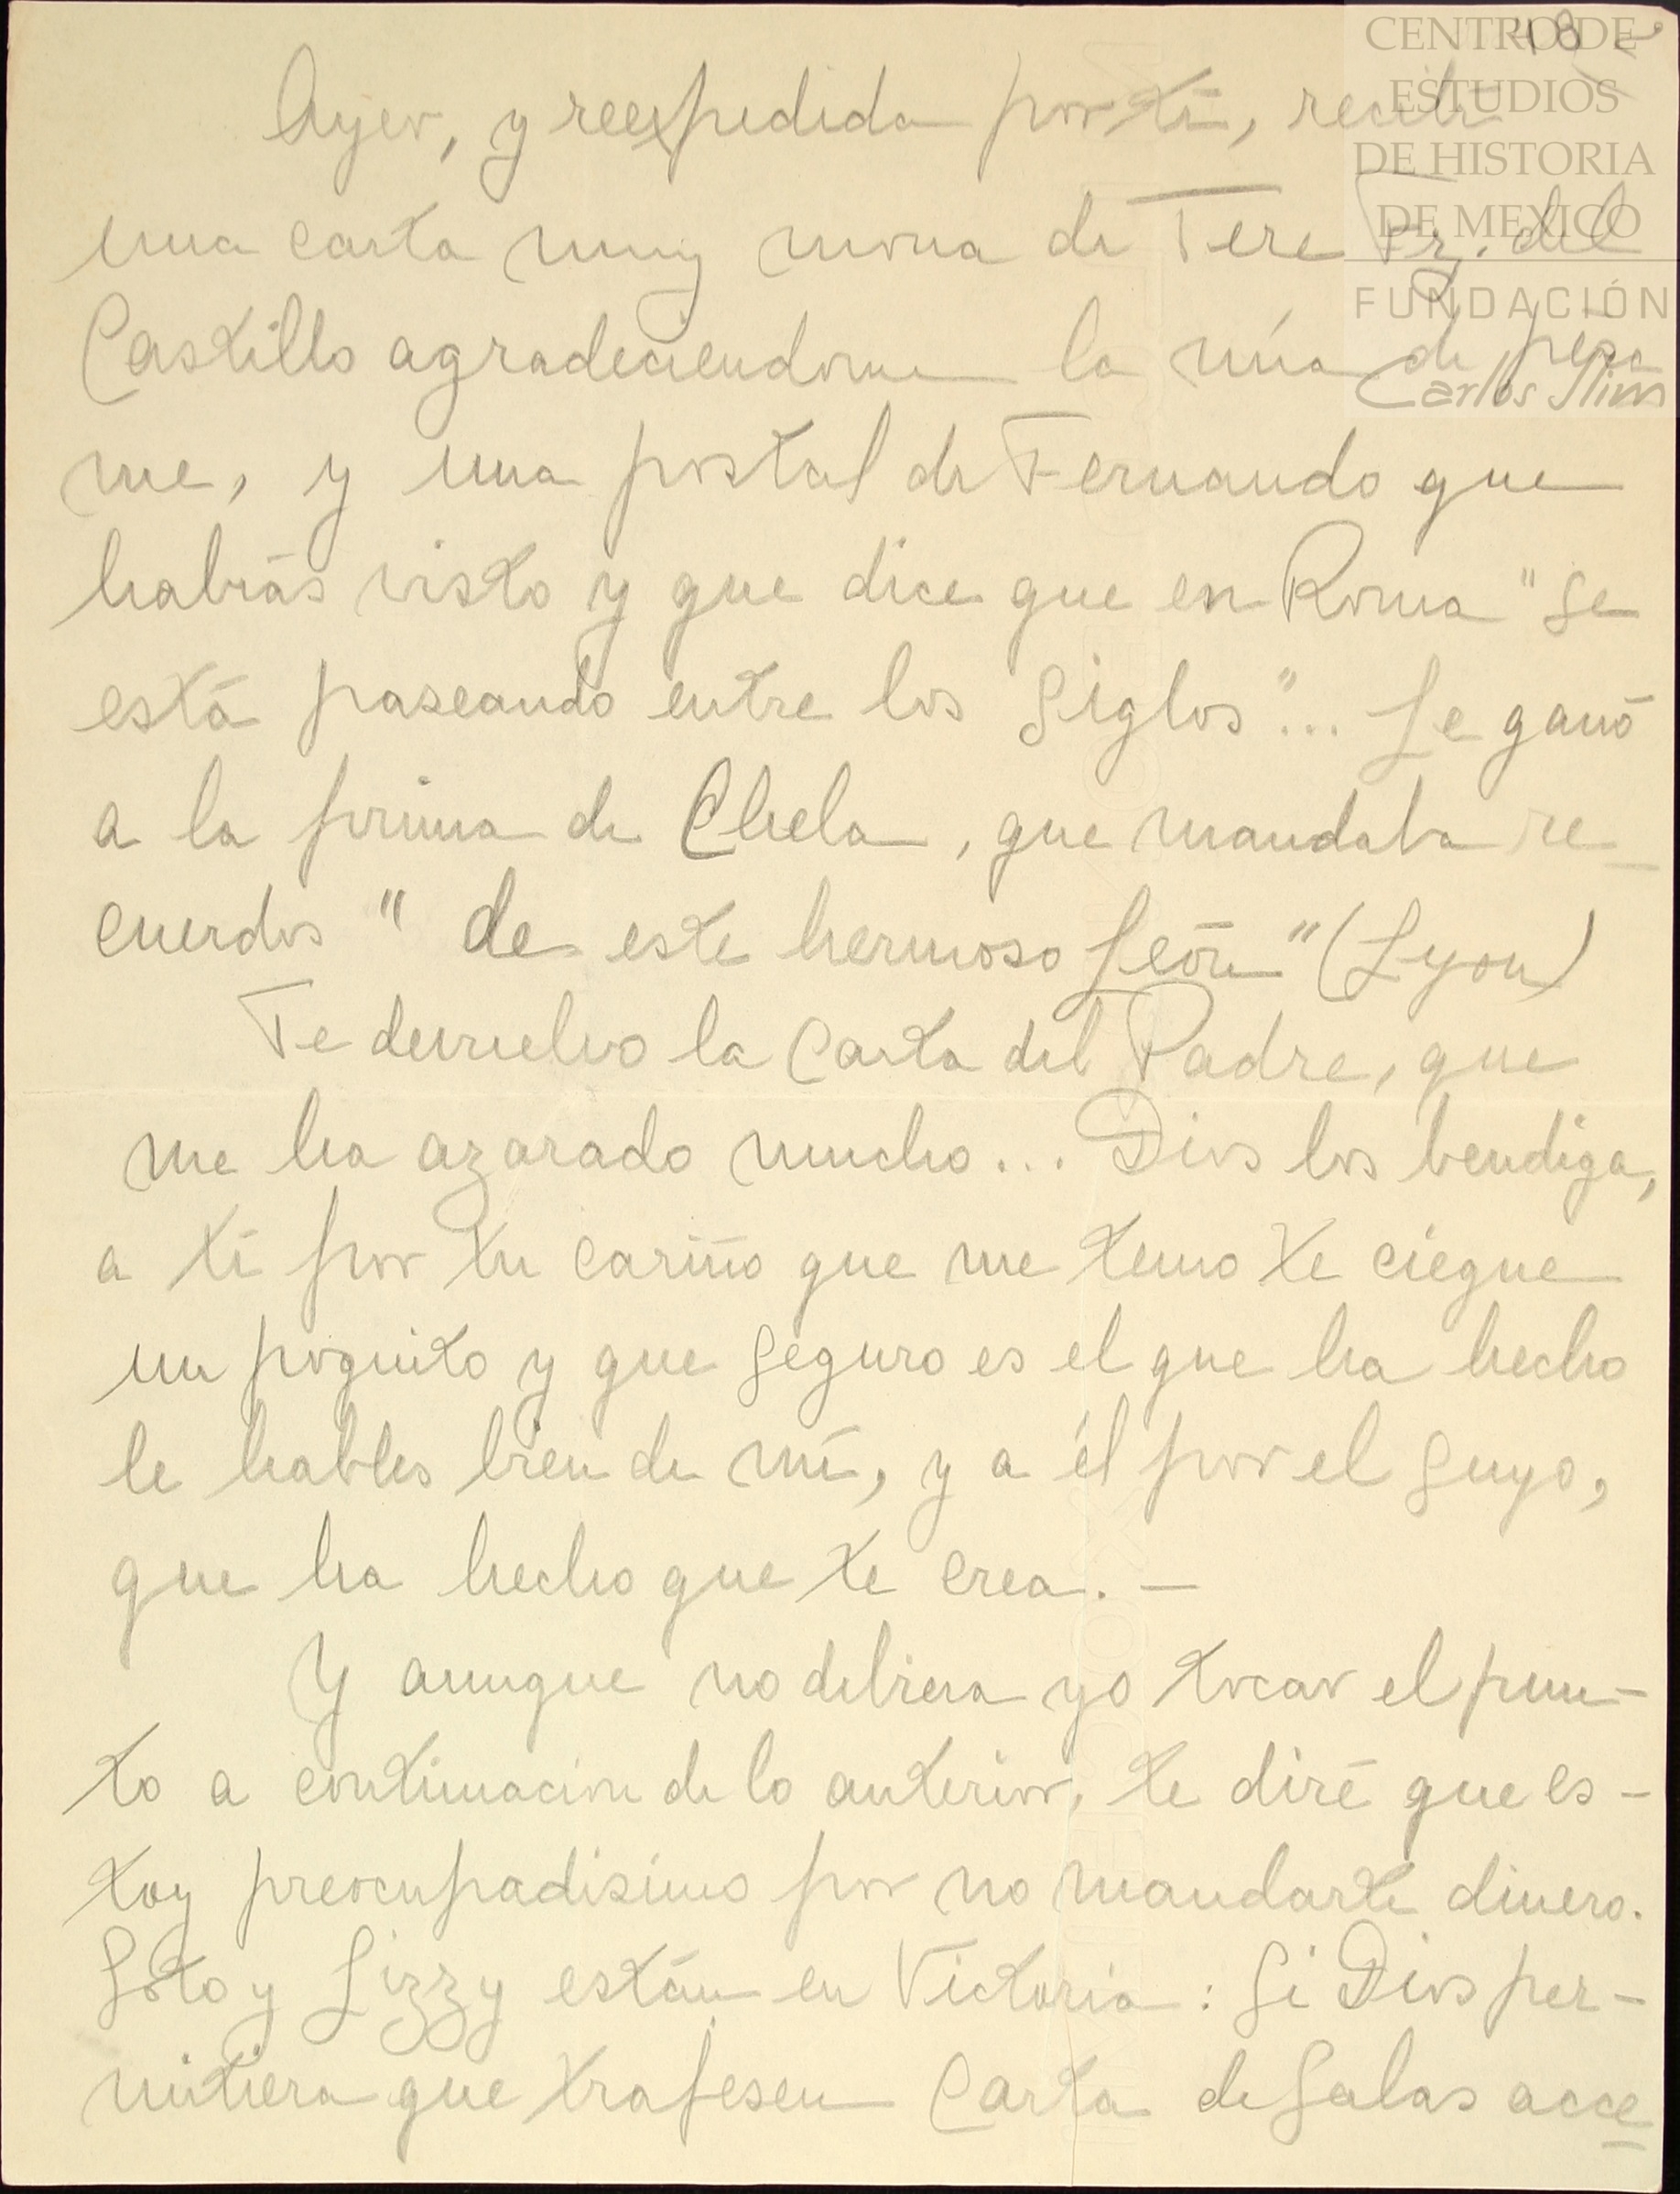 48
CENTRO DE
ESTUDIOS
DE HISTORIA
DE MEXICO
FUNDACIÓN
Carlos Slim
Ayer, y reexpedida por tí, recibí
una carta muy mona de Tere Fz. del
Castillo agradeciendome la mía de pésa
me, y una postal de Fernando que
habrás visto y que dice que en Roma "se
está paseando entre los siglos"... Le ganó
a la prima de Chela, que mandaba re_
cuerdos "de este hermoso León" (Lyon)
Te devuelvo la carta del Padre, que
me ha azarado mucho... Dios los bendiga,
a tí por tu cariño que me temo te ciegue
un poquito y que seguro es el que ha hecho
le hables bien de mí, y a él por el suyo,
que ha hecho que te crea. —
Y aunque no debiera yo tocar el pun-
to a continuacion de lo anterior, te diré que es-
toy preocupadisimo por no mandarte dinero.
Soto y Lizzy están en Victoria: si Dios per-
mitiera que trajesen carta de Salas acce